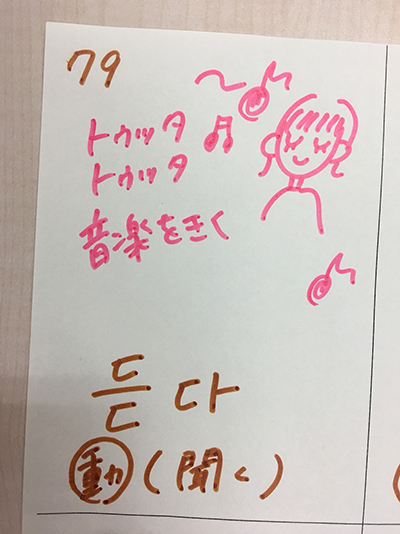 79
トゥッタ
トゥッタ
音楽をきく
듣다
動(聞く)